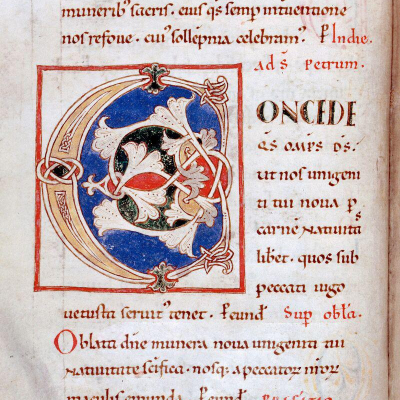 munerib' sacris. eius q̄s semp̄ interventione
nos refove. cui' sollepnia celebram'. P̄ Indie.
ad s̄ Petrum.
CONCEDE
q̄s om̄ps d̄s.
ut nos unigeni
ti tui nova p̄
carnē nativita
liberet. quos sub
peccati iugo
vetusta servit' tenet. P̄ eund̄
Sup̄ obl̄a.
Oblata dn̄e munera nova unigeniti tui
nativitate sc̄ifica. nosq; a peccator̄ nr̄or̄
maculis emunda. P̄ eund̄. Prefatio